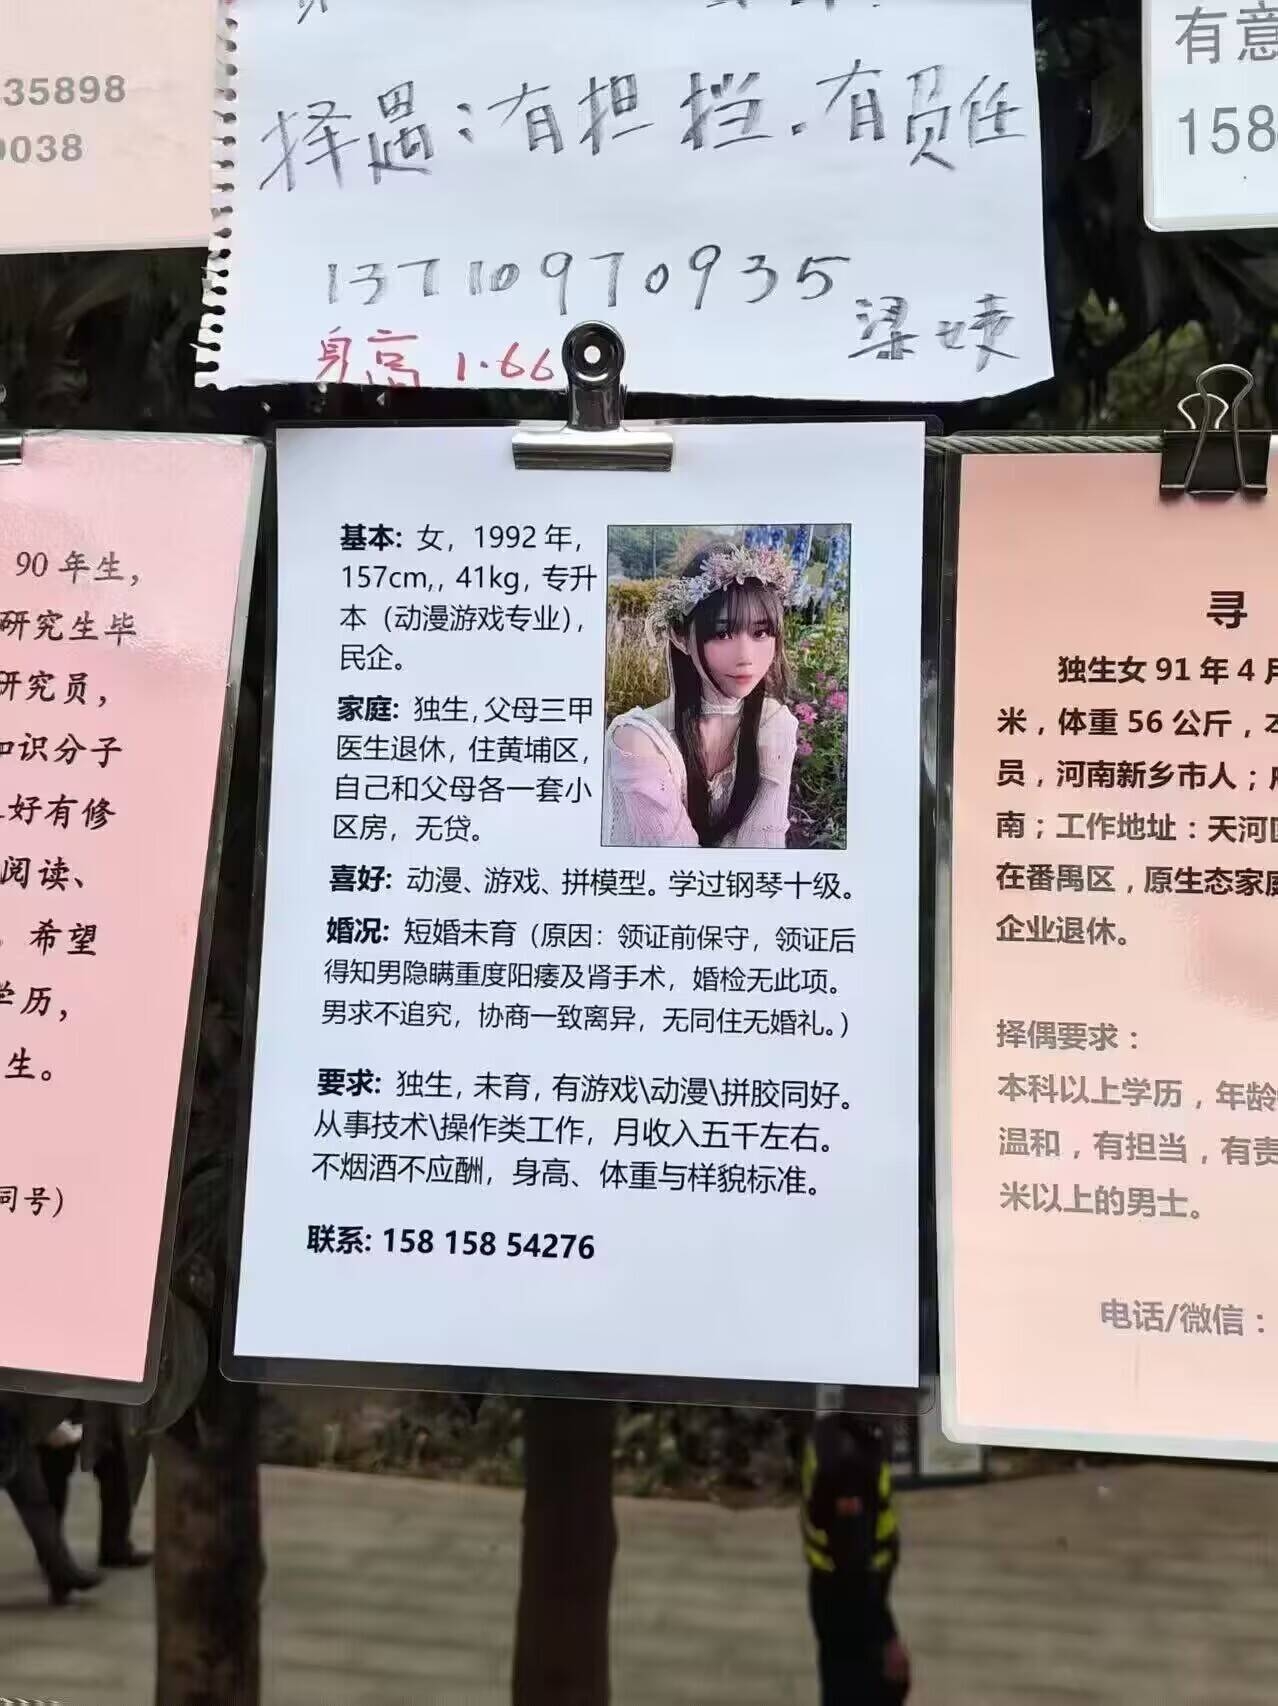 35898
0038
择遇：有担挡.有员任
13710970935
梁姨
身高 1.66
有意
158
90年生，
研究生毕
研究员，
知识分子
好有修
阅读、
希望
学历，
生。
同号）
基本: 女，1992 年，
157cm,，41kg，专升
本（动漫游戏专业），
民企。
家庭: 独生，父母三甲
医生退休，住黄埔区，
自己和父母各一套小
区房，无贷。
喜好: 动漫、游戏、拼模型。学过钢琴十级。
婚况: 短婚未育（原因：领证前保守，领证后
得知男隐瞒重度阳痿及肾手术，婚检无此项。
男求不追究，协商一致离异，无同住无婚礼。）
要求: 独生，未育，有游戏\动漫\拼胶同好。
从事技术\操作类工作，月收入五千左右。
不烟酒不应酬，身高、体重与样貌标准。
联系: 158 158 54276
寻
独生女 91 年 4 月
米，体重 56 公斤，本
员，河南新乡市人；户
南；工作地址：天河区
在番禺区，原生态家庭
企业退休。
择偶要求：
本科以上学历，年龄
温和，有担当，有责
米以上的男士。
电话/微信：